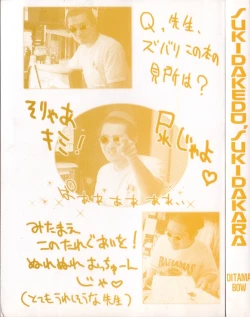 Q、先生、
ズバリこの本の
見所は?
そりゃあ
キミ!
尿じゃよ♡
ぱぁぁぁぁぁぁぁ
みたまえ
このたれぐあいを!
ぬれぬれむっちゅーん
じゃ♡
(とてもうれしそうな先生)
SUKIDAKEDO SUKIDAKARA
DITAMA
BOW